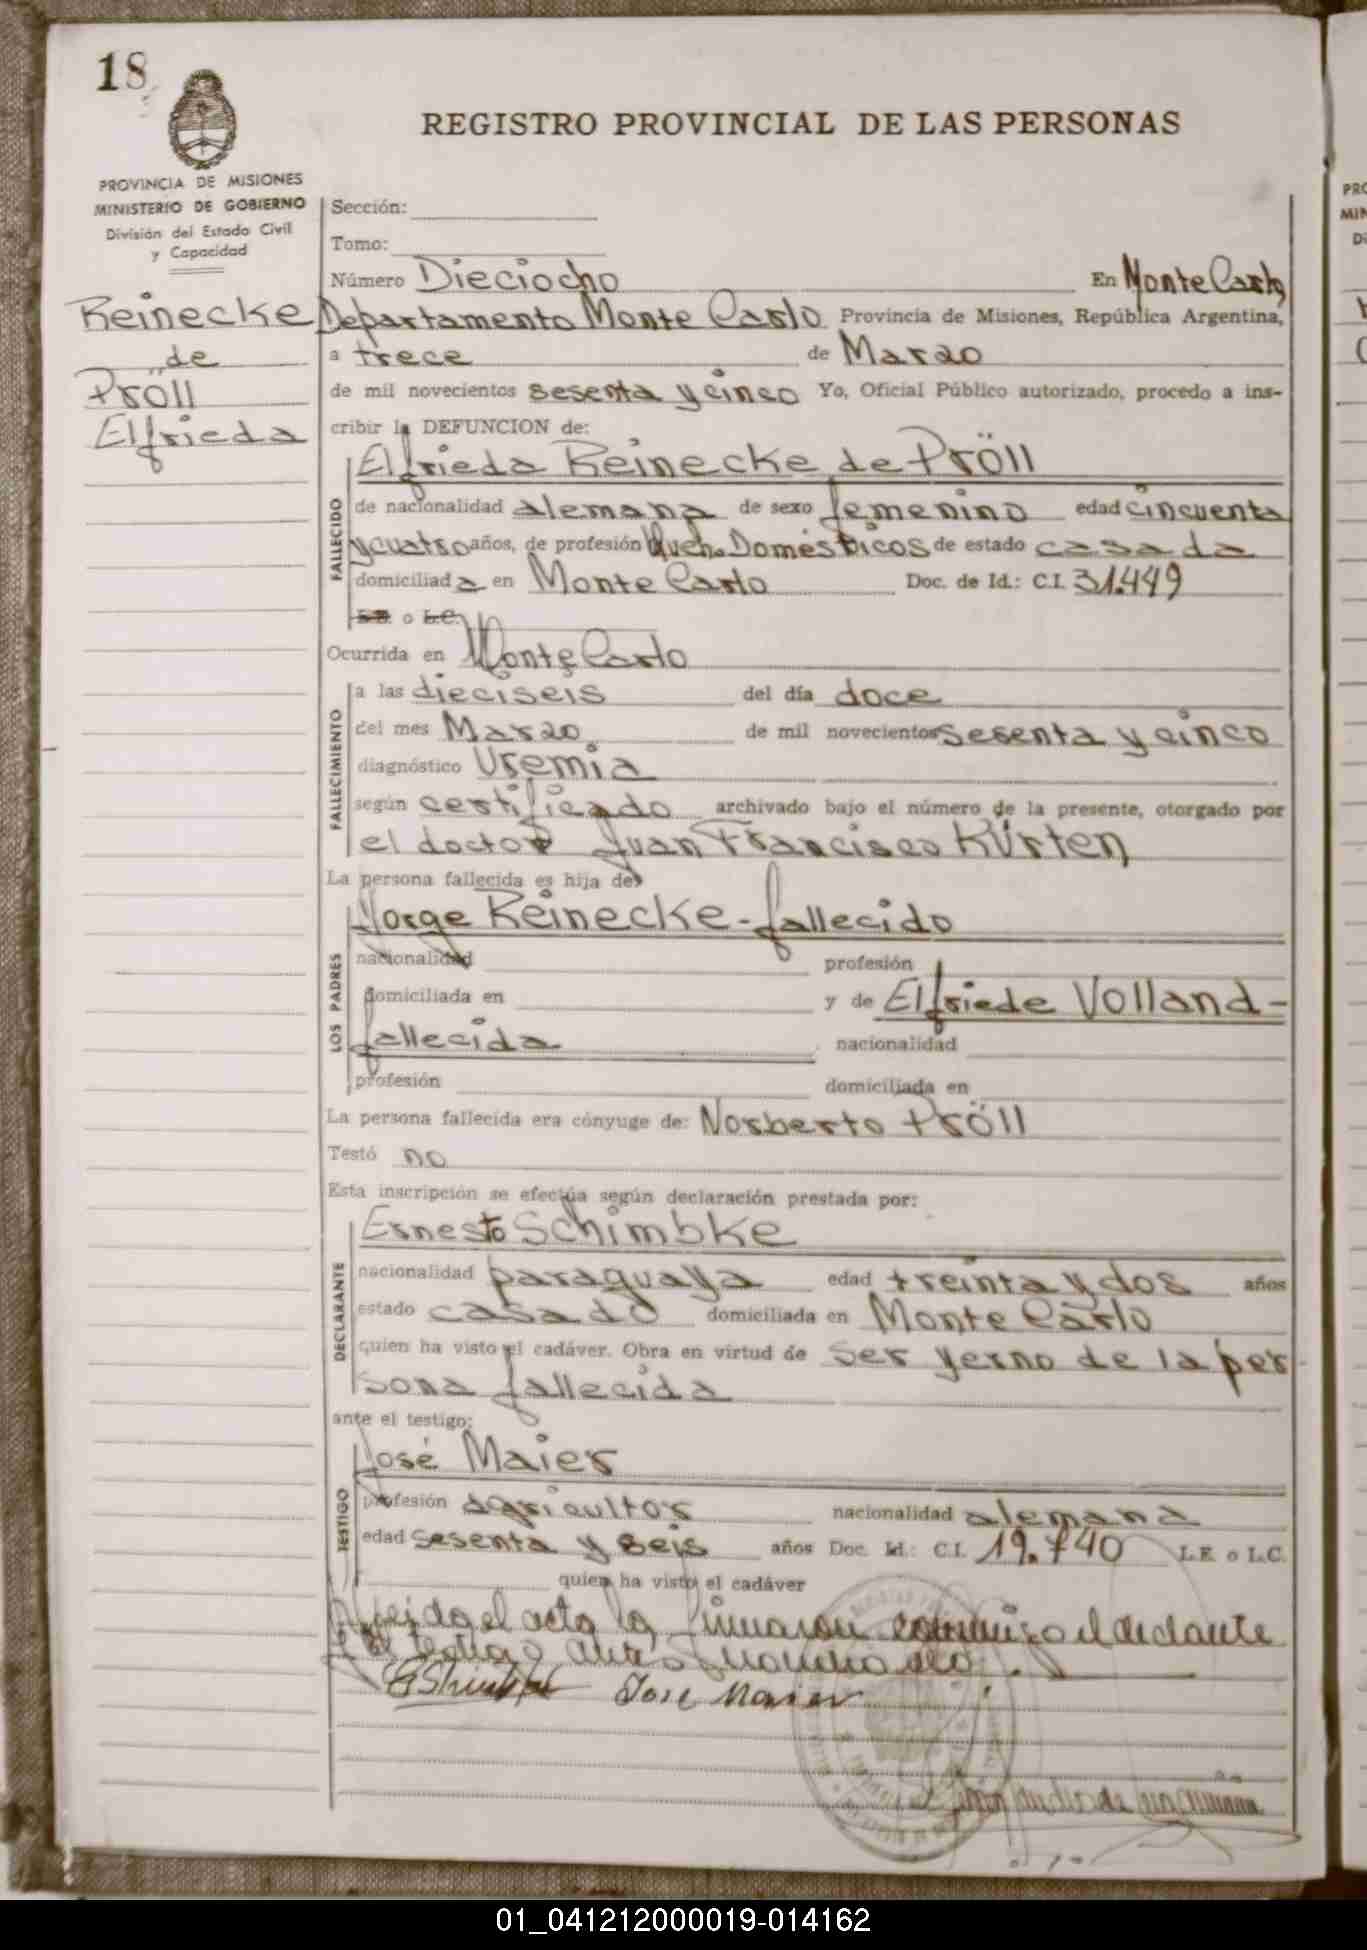 18
REGISTRO PROVINCIAL DE LAS PERSONAS
PROVINCIA DE MISIONES
MINISTERIO DE GOBIERNO
División del Estado Civil
y Capacidad
Reinecke
de
Pröll
Elfrieda
Sección:
Tomo:
Número Dieciocho En Monte Carlo
Departamento Monte Carlo Provincia de Misiones, República Argentina,
a trece de Marzo
de mil novecientos sesenta y cinco Yo, Oficial Público autorizado, procedo a ins-
cribir la DEFUNCION de:
Elfrieda Reinecke de Pröll
FALLECIDO
de nacionalidad alemana de sexo femenino edad cincuenta
y cuatro años, de profesión Queh. Domésticos de estado casada
domiciliada en Monte Carlo Doc. de Id.: C.I. 31.449
L.E. o L.C.
Ocurrida en Monte Carlo
FALLECIMIENTO
a las dieciseis del día doce
del mes Marzo de mil novecientos sesenta y cinco
diagnóstico Uremia
según certificado archivado bajo el número de la presente, otorgado por
el doctor Juan Francisco Kürten
La persona fallecida es hija de
LOS PADRES
Jorge Reinecke - fallecido
nacionalidad profesión
domiciliada en y de Elfriede Volland -
fallecida nacionalidad
profesión domiciliada en
La persona fallecida era cónyuge de: Norberto Pröll
Testó no
Esta inscripción se efectúa según declaración prestada por:
DECLARANTE
Ernesto Schimbke
nacionalidad paraguaya edad treinta y dos años
estado casado domiciliada en Monte Carlo
quien ha visto el cadáver. Obra en virtud de ser yerno de la per-
sona fallecida
ante el testigo:
TESTIGO
José Maier
profesión agricultor nacionalidad alemana
edad sesenta y seis años Doc. Id.: C.I. 19.740 L.E. o L.C.
quien ha visto el cadáver
el acta la firmaron conmigo el declarante
Jose Maier
01_041212000019-014162